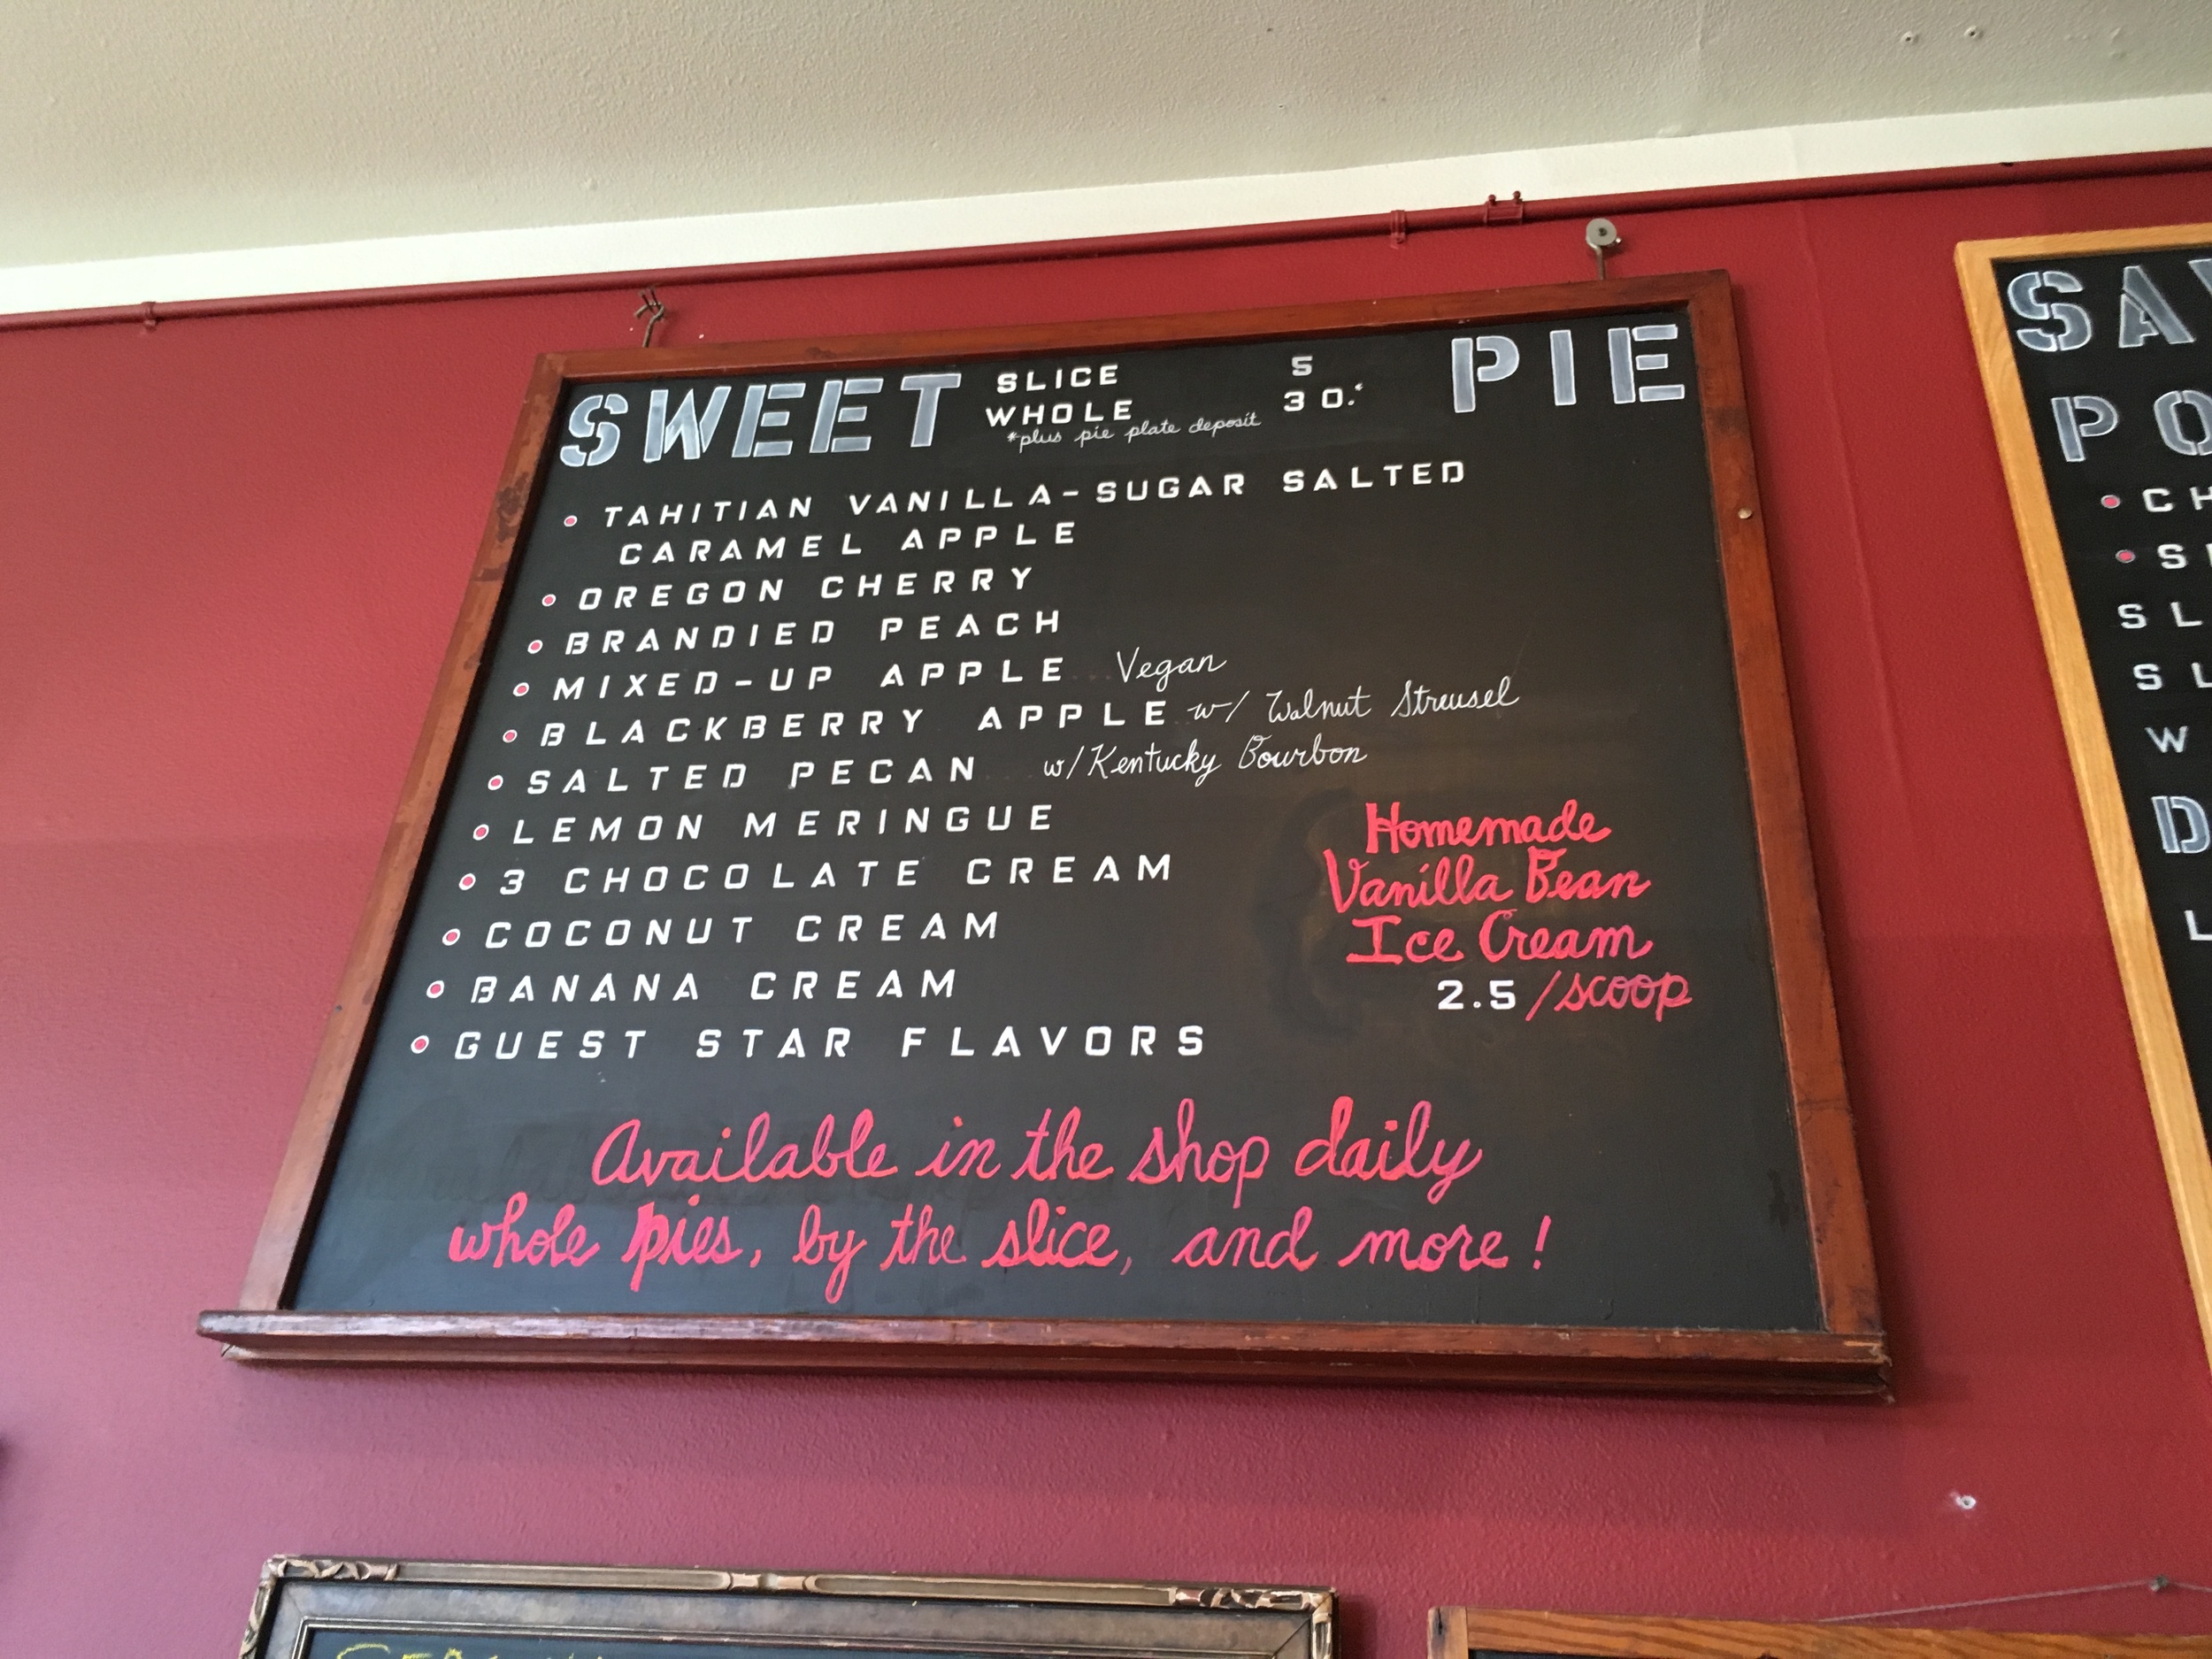 SWEET PIE
SLICE 5
WHOLE 30.*
*plus pie plate deposit
• TAHITIAN VANILLA-SUGAR SALTED
CARAMEL APPLE
• OREGON CHERRY
• BRANDIED PEACH
• MIXED-UP APPLE Vegan
• BLACKBERRY APPLE w/ Walnut Streusel
• SALTED PECAN w/ Kentucky Bourbon
• LEMON MERINGUE
• 3 CHOCOLATE CREAM
• COCONUT CREAM
• BANANA CREAM
• GUEST STAR FLAVORS
Homemade
Vanilla Bean
Ice Cream
2.5/scoop
Available in the shop daily
whole pies, by the slice, and more!